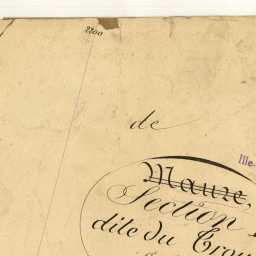 2200
de
Ille-
Maure,
Section
dite du Trou